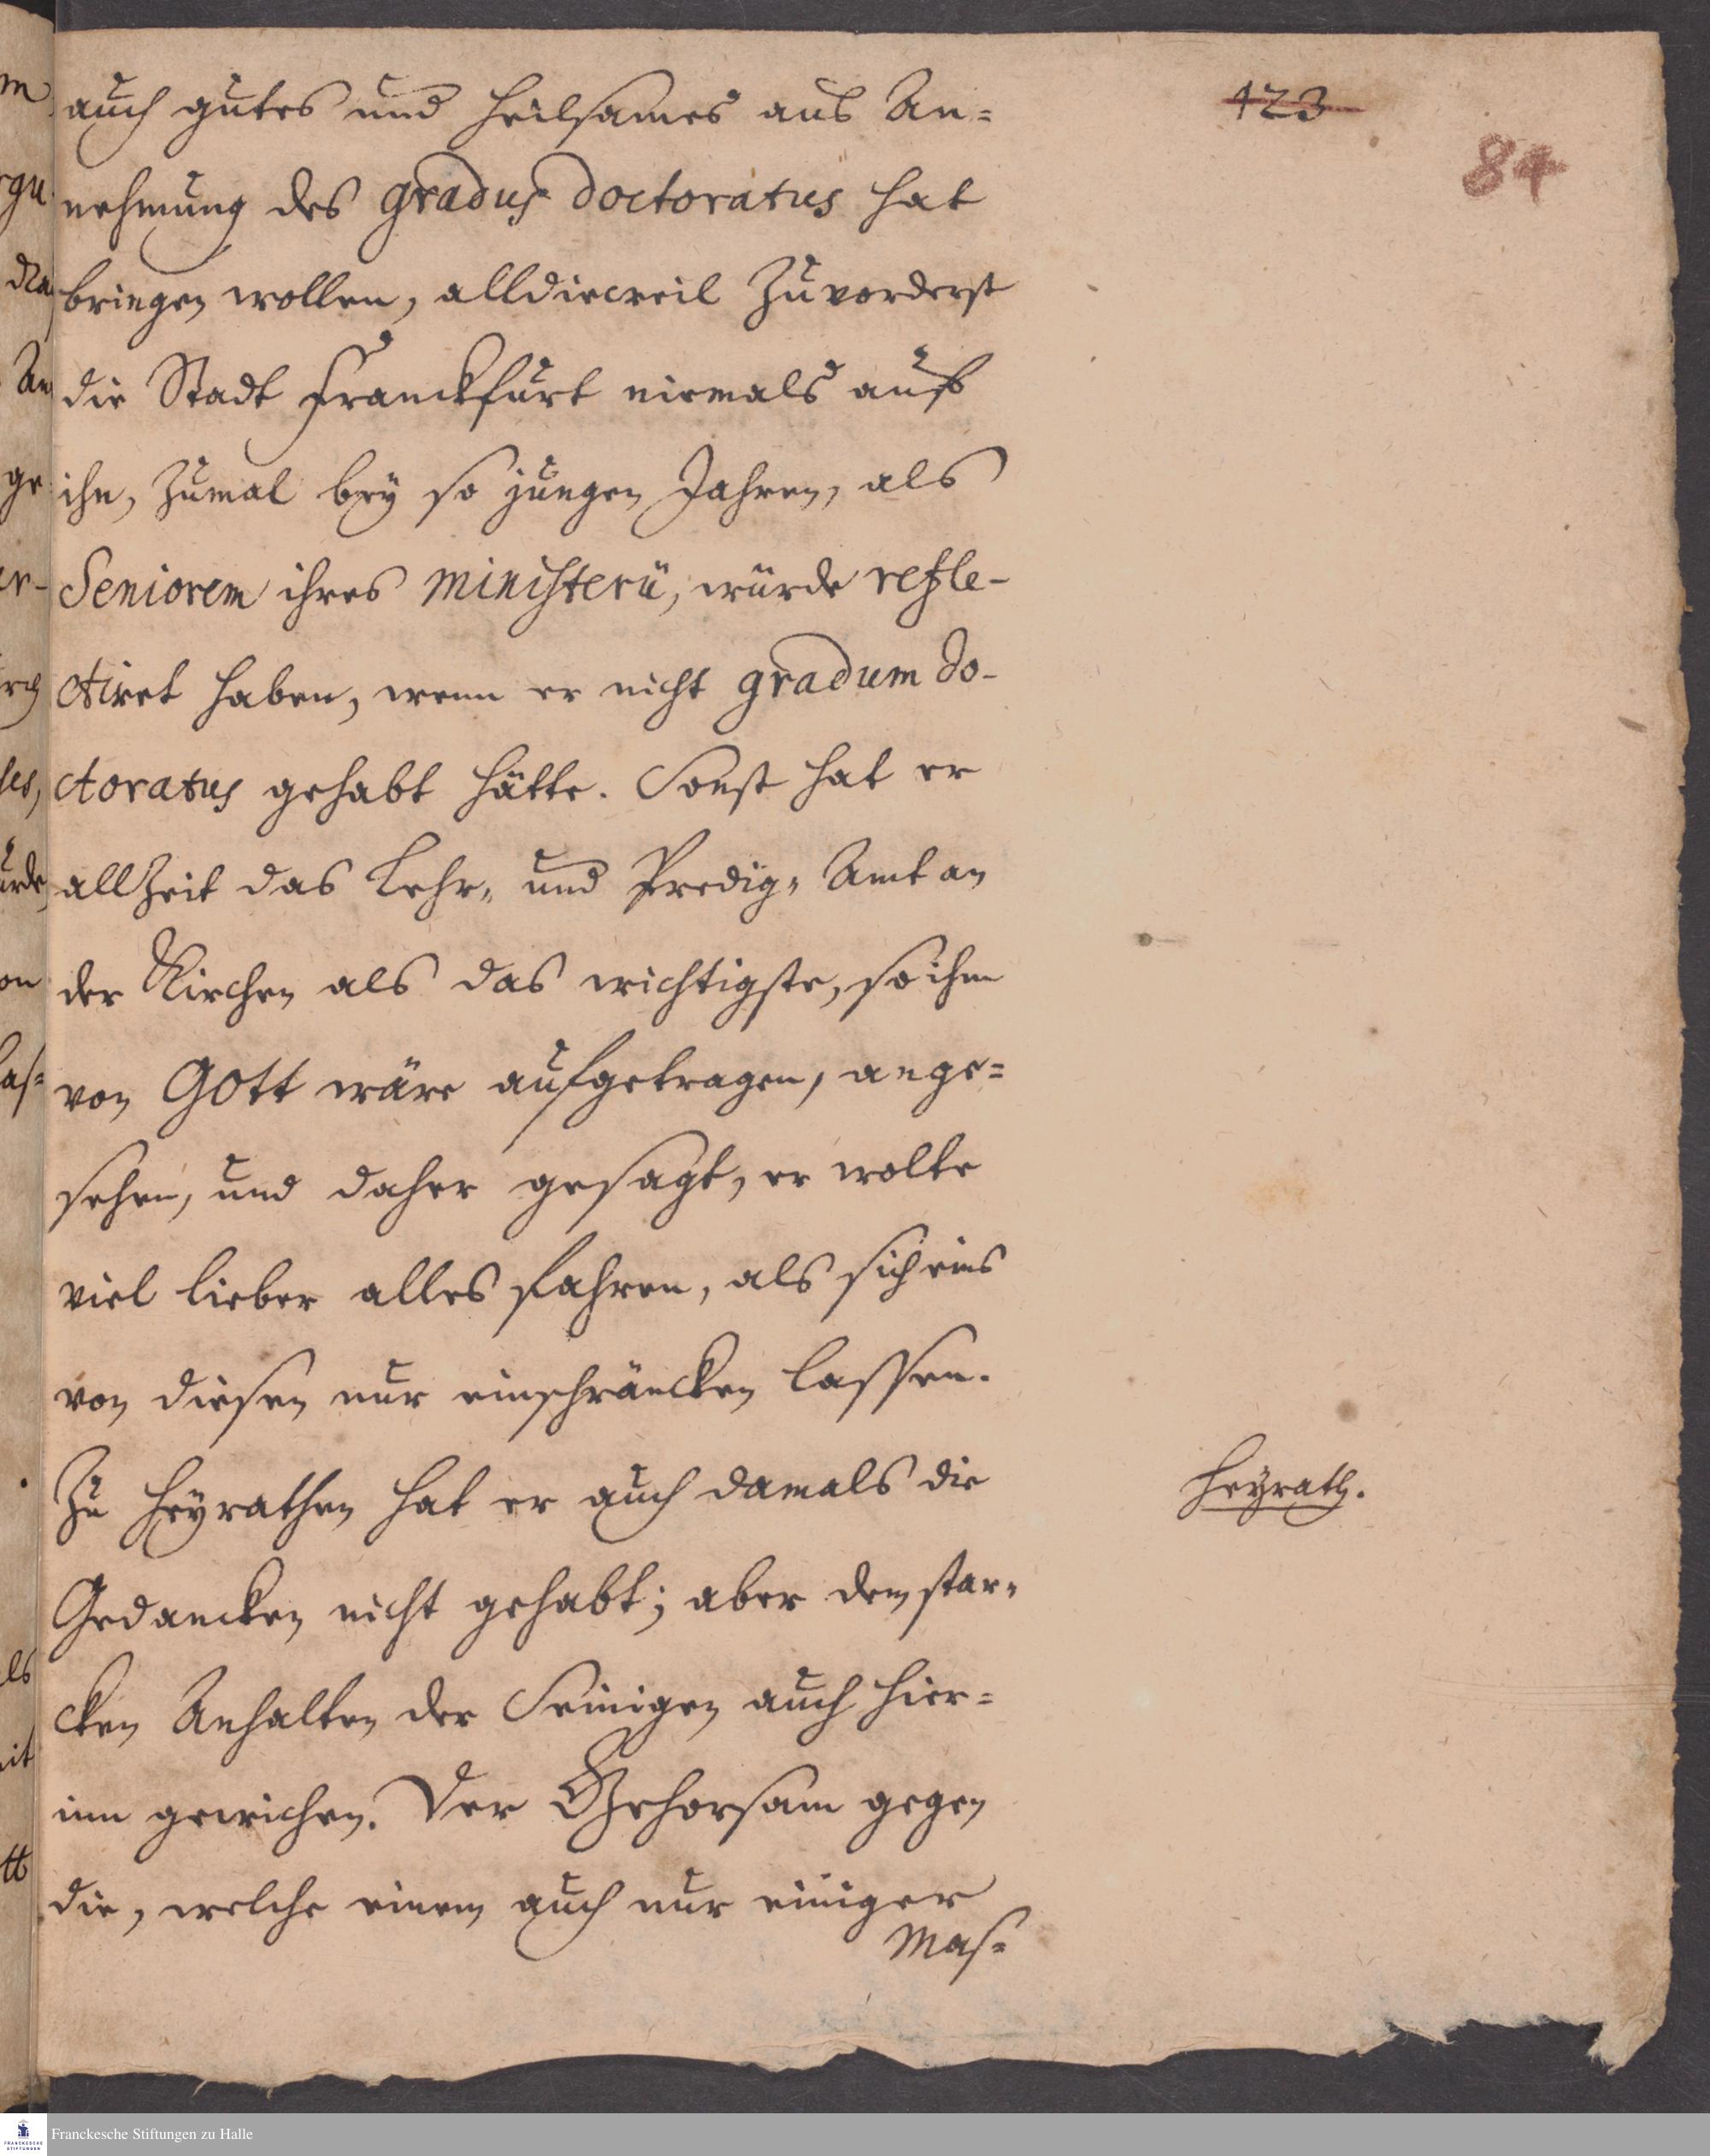 123
84
auch gutes und heilsames aus An=
nehmung des gradus doctoratus hat
bringen wollen, alldieweil zuvorderst
die Stadt Franckfurt niemals auf
ihn, zumal bey so jungen Jahren, als
Seniorem ihres Ministerii, würde refle-
ctiret haben, wenn er nicht gradum do-
ctoratus gehabt hätte. Sonst hat er
allzeit das Lehr- und Predig-Amt an
der Kirchen als das wichtigste, so ihm
von Gott wäre aufgetragen, ange=
sehen, und daher gesagt, er wolte
viel lieber alles fahren, als sich eins
von diesen nur einschräncken lassen.
Zu heyrathen hat er auch damals die
Heyrath.
Gedancken nicht gehabt; aber dem star-
cken Anhalten der Seinigen auch hier=
inn gewichen. Der Gehorsam gegen
die, welche einem auch nur einiger
Mas=
Franckesche Stiftungen zu Halle